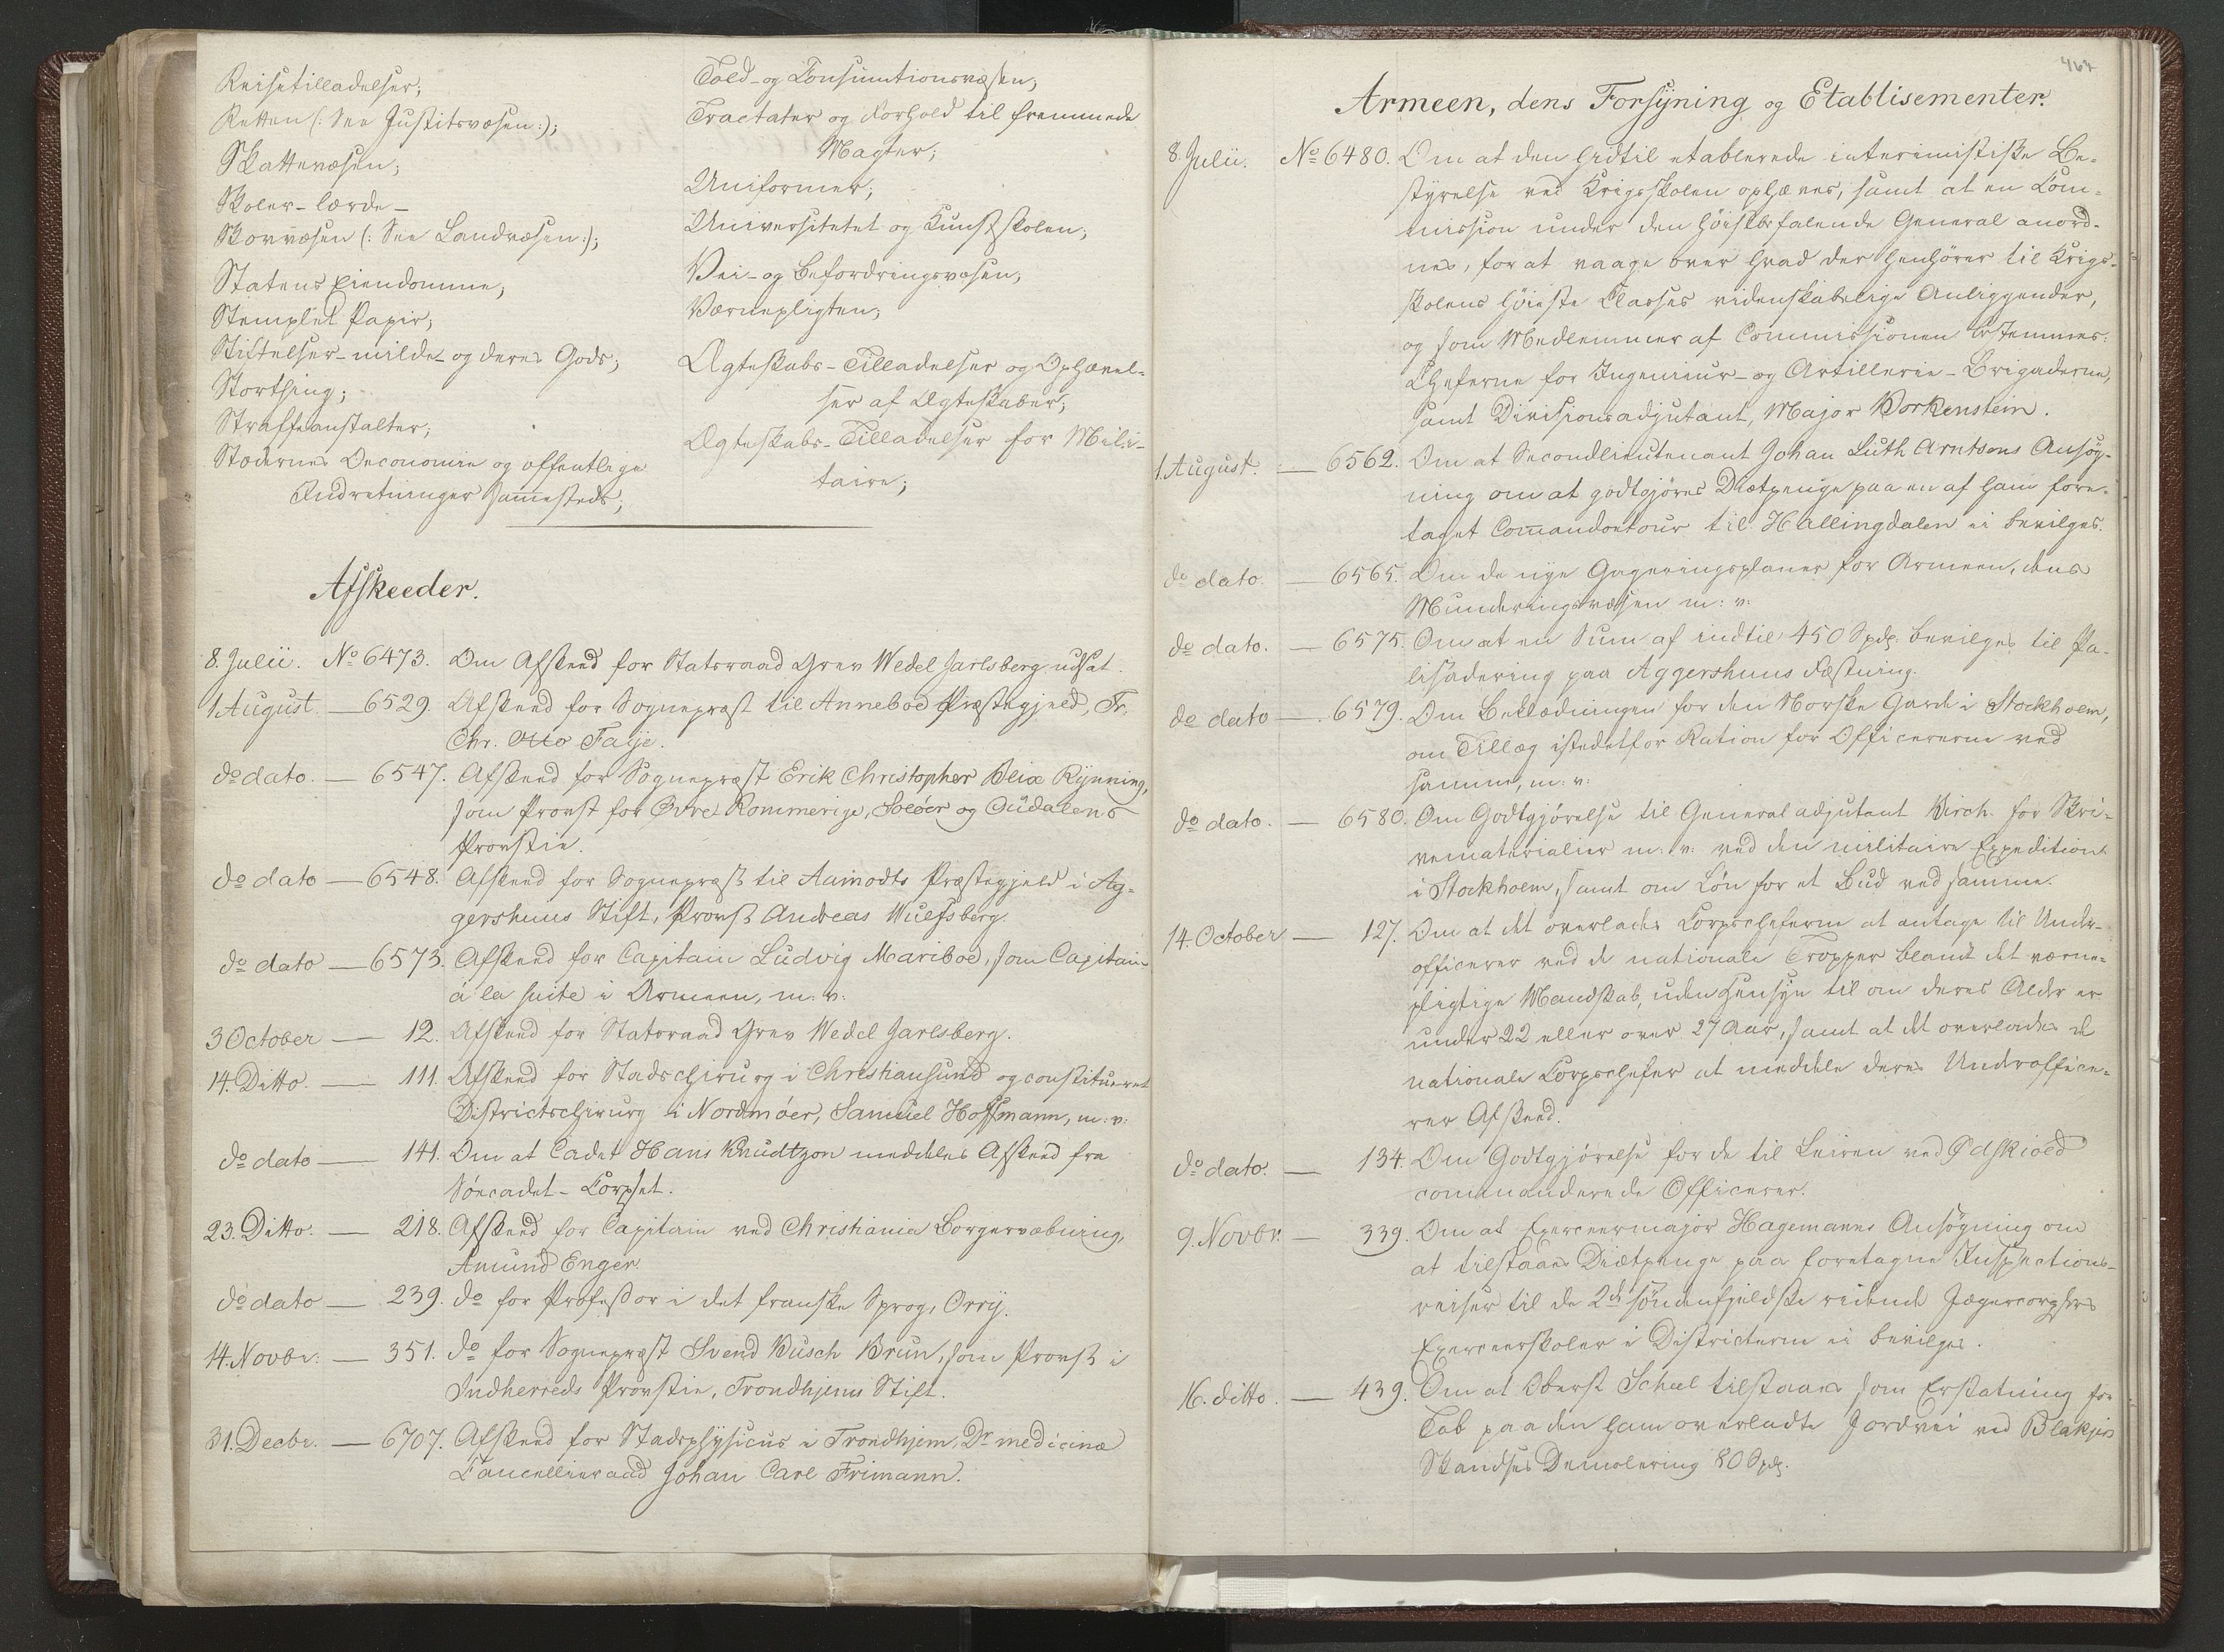 Reisetilladelser;
Retten (: See Justitsvæsen:);
Skattevæsen;
Skoler-lærde-
Skovvæsen (: See Landvæsen:);
Statens Eiendomme;
Stemplet Papir;
Stiftelser-milde-og deres Gods;
Storthing;
Straffeanstalter;
Stædernes Oeconomie og offentlige
Indretninger sammesteds;
Told-og Consumtionsvæsen;
Tractater og Forhold til fremmede
Magter;
Uniformer;
Universitetet og Kunstskolen;
Vei-og Befordringsvæsen;
Værnepligten;
Ægteskabs-Tilladelser og Ophævel-
ser af Ægteskaber;
Ægteskabs-Tilladelser for Mili-
taire;
Afskeeder.
8. Julii. No 6473. Om Afskeed for Statsraad Grev Wedel Jarlsberg udsat.
1 August. — 6529. Afskeed for Sognepræst til Anneboe Præstegjeld, Fr.
Chr. Otto Falje.
do dato. — 6547. Afskeed for Sognepræst Erik Christopher Blix Rynning,
som Provst for Øvre Rommerige, Soløer og Oudalens
Provstie.
do dato — 6548. Afskeed for Sognepræst til Aamodts Præstegjeld i Ag-
gershuus Stift, Provst Andreas Wulfsberg.
do dato — 6573. Afskeed for Capitain Ludvig Mariboe, som Capitain
à la suite i Armeen, m: v:
3 October — 12. Afskeed for Statsraad Grev Wedel Jarlsberg.
14. Ditto. — 111. Afskeed for Stadschirurg i Christiansund og constitueret
Districtschirurg i Nordmøer, Samuel Hoffmann, m: v:
do dato — 141. Om at Cadet Hans Knudtzon meddeles Afskeed fra
Søecadet-Corpset.
23. Ditto. — 218. Afskeed for Capitain ved Christiania Borgervæbning,
Amund Enger.
do dato — 239. do for Professor i det franske Sprog, Orry.
14. Novbr: — 351. do for Sognepræst Svend Busch Brun, som Provst i
Indherreds Provstie, Trondhjems Stift.
31. Decbr. — 6707. Afskeed for Stadsphysicus i Trondhjem, Dr medicinæ
Cancellieraad Johan Carl Frimann.
464
Armeen, dens Forsyning og Etablisementer.
8. Julii. No 6480. Om at den hidtil etablerede interimistiske Be-
styrelse ved Krigsskolen ophæves, samt at en Com-
mission under den høistbefalende General anord-
nes, for at vaage over hvad der henhører til Krigs-
skolens høieste Classes videnskabelige Anliggender,
og som Medlemmer af Commissionen bestemmes:
Cheferne for Ingenieur-og Artillerie-Brigaderne,
samt Divisionsadjutant, Major Vorkenstein.
1. August. — 6562. Om at Secondlieutenant Johan Luth Arntsens Ansøg-
ning om at godtgjøres Diætpenge paa en af ham fore-
taget Comandoetour til Hallingdalen ei bevilges.
do dato. — 6565. Om de nye Gageringsplaner for Armeen, dens
Munderingsvæsen m: v:
do dato. — 6575. Om at en Sum af indtil 450 Spd. bevilges til Pa-
lisadering paa Aggershuus Fæstning.
do dato — 6579. Om Beklædningen for den Norske Garde i Stockholm,
om Tillæg istedetfor Ration for Officererne ved
samme, m: v:
do dato. — 6580. Om Godtgjørelse til Generaladjutant Birch for Skri-
vematerialier m: v: ved den militaire Expedition
i Stockholm, samt om Løn for et Bud ved samme.
14. October — 127. Om at det overlades Corpscheferne at antage til Under-
officerer ved de nationale Tropper blandt det værne-
pligtige Mandskab, uden Hensyn til om deres Alder er
under 22 eller over 27 Aar, samt at det overlades de
nationale Corpschefer at meddele deres Underoffice-
rer Afskeed.
do dato. — 134. Om Godtgjørelse for de til Leiren ved Gidskiold
commanderede Officerer.
9. Novbr. — 339. Om at Exerceermajor Hagemanns Ansøgning om
at tilstaaes Diætpenge paa foretagne Inspections-
reiser til de 2de søndenfjeldske ridende Jægercorpsers
Exerceerskoler i Districterne ei bevilges.
16. ditto. — 439. Om at Oberst Scheel tilstaaes som Erstatning for
Tab paa den ham overladte Jordvei ved Blakjers
Skandses Demolering 80 Spd.